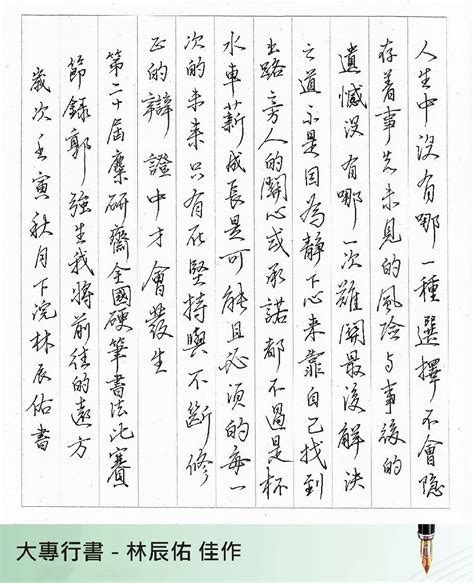 人生中沒有哪一種選擇不會隱
存著事先未見的風險與事後的
遺憾沒有哪一次難關最後解決
之道不是因為靜下心來靠自己找到
出路旁人的關心或承諾都不過是杯
水車薪成長是可能且必須的每一
次的未來只有在堅持與不斷修
正的辯證中才會發生
第二十屆麋研齋全國硬筆書法比賽
節錄郭強生我將前往的遠方
歲次壬寅秋月下浣林辰佑書
大專行書 - 林辰佑 佳作